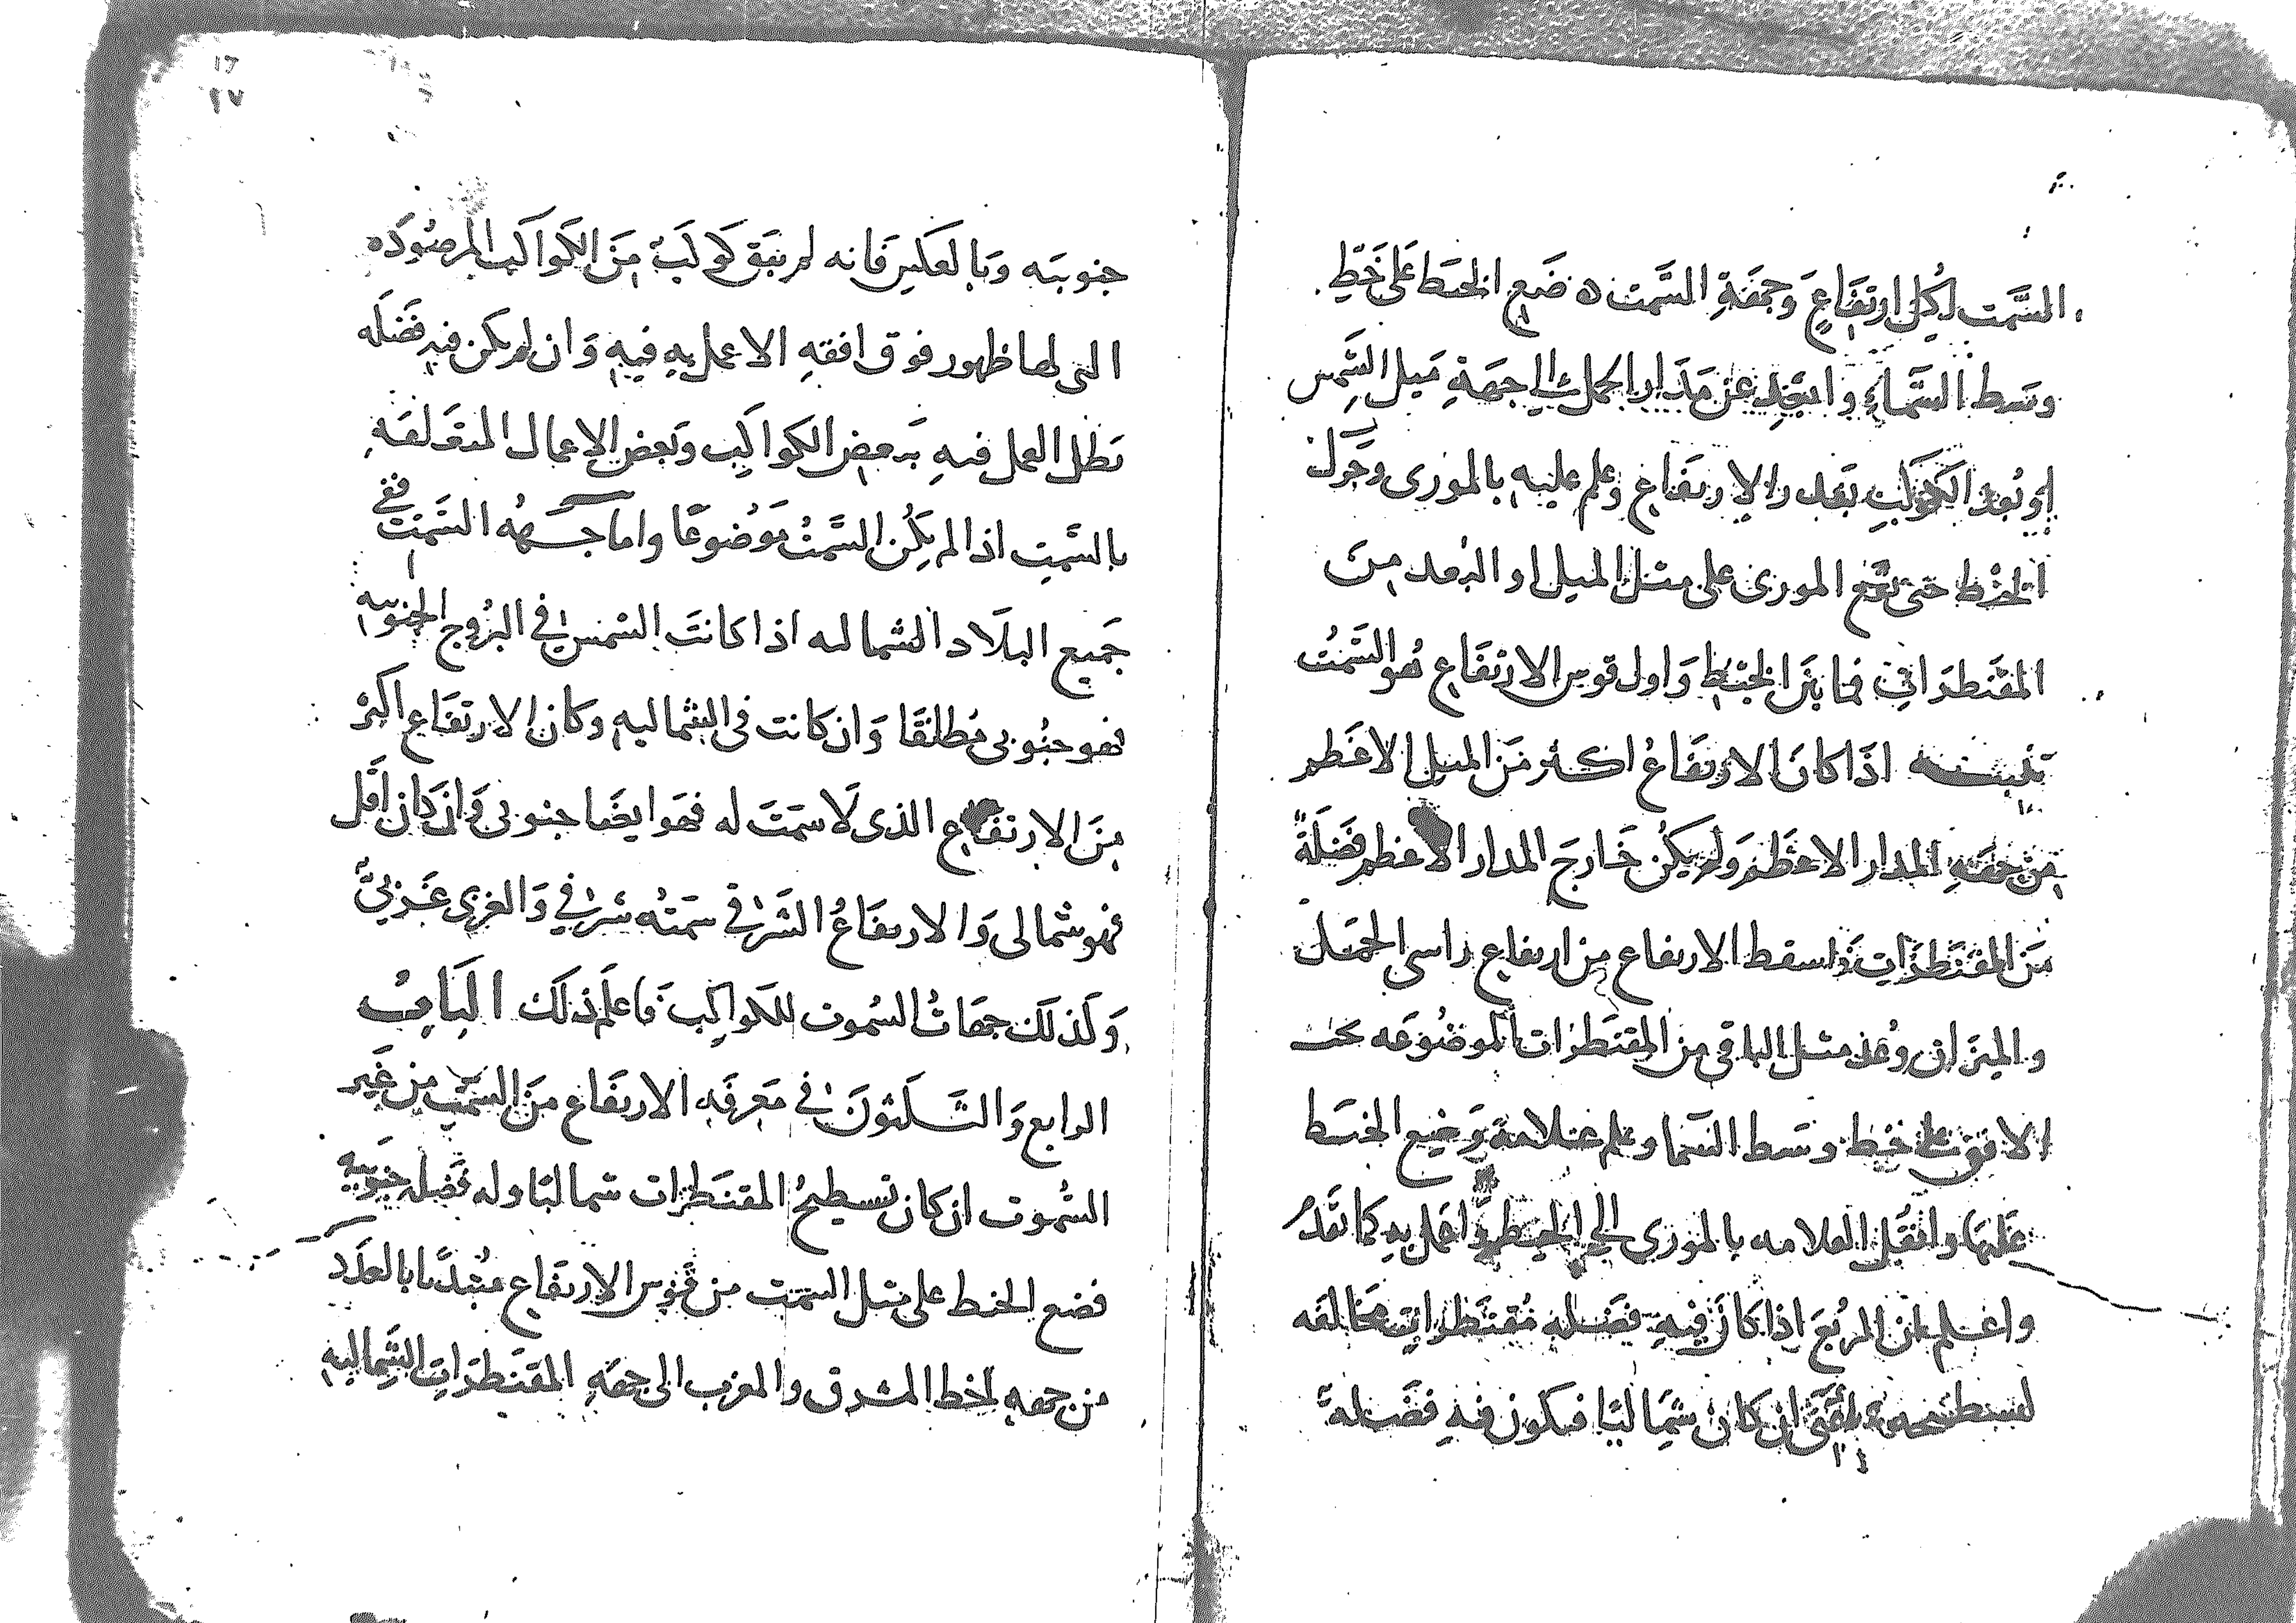 السَّمت لكل ارتفَاعٍ وَجهَةِ السَّمت ه ضَع الخيَط عَلى خَطِّ
وسَط السَّماءِ وابعَد عن مَدَار الحمل الى جهَةِ مَيل الشَمس
او بُعد الكوكب بقَدر الارتفَاع وعلم عليه بالمورى وحَول
الخيْط حتى يقع المورى على مثل الميل او البُعد من
المقَنطرَات فما بَين الخيْط وَاول قوس الارتفَاع هُو السَّمتُ
تنبيه اذا كان الارتفَاعُ اكثر مَن الميل الاعَظم
من جهَةِ المدار الاعظم وَلم يكُن خَارجَ المدار الاعظم فَضَلَةٌ
مَن المقنطَرَات فاسقط الارتفاع من ارتفاع راسى الحَمَل
والميزان وعُد مثل الباقى من المقنطرَات الموضُوعَه تحت
الافق على خَط وسَط السَّما وعلم عَلامة وَضع الخيَط
عَليهَا وانقُل العلامه بالمورى الى الخيط واعمَل به كما تقَدم
واعلم ان المربُعَ اذا كان فيه فَضله مُقنطرات مخَالفَه
لتسطيحه اعنى ان كان شِمَاليًا فيكون فيهِ فضَلة
جنوبيَه وَبالعَكس فَانه لم يَبق كوكبٌ مَن الكَواكب المرصُودَه
التى لها ظهور فوق افقهِ الا عمل بهِ فيهِ وَان لم يكن فيه فَضلَه
بَطل العمل فيهِ بَبعض الكواكِب وبَعض الاعمال المتعَلقَه
بالسَّمتِ اذا لم يَكُن السَّمتُ مَوضُوعًا واما جهَةُ السَّمت ففى
جَميع البلَاد الشماليه اذا كانَت الشمس فى البرُوج الجنوبيه
فهو جنُوبى مُطلقًا وَان كانت فى الشماليه وكان الارتفَاع اكثر
مِنَ الارتفاع الذى لَا سَمتَ له فهَو ايضَا جنوبى وَان كان اقَل
فهو شمالى وَالارتفاعُ الشَرقى سَمتُه شرقى وَالغربى غَربىٌّ
وَلَذلكَ جهَاتُ السُموت للكَواكب فَاعلَم ذلَك البَابُ
الرابع وَالثَلثونَ فى مَعرفَةِ الارتفَاع منَ السَّمت من غَير
السُموت ان كان تسطيحُ المقنطرات شماليًا وله فَضله جنوبيه
فضع الخيط على مثل السمت من قوس الارتفاع مبُتدًا بالعَدَد
من جهه خط المشرق والمغرب الى جهَةِ المقَنطرَاتِ الشَماليهِ